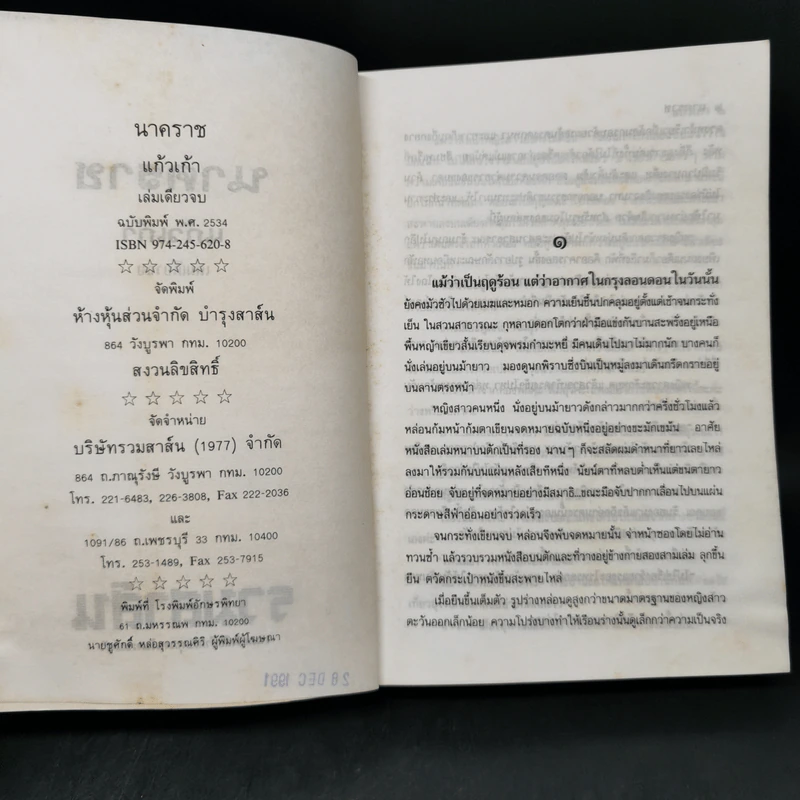 นาคราช
แก้วเก้า
เล่มเดียวจบ
ฉบับพิมพ์ พ.ศ. 2534
ISBN 974-245-620-8
☆ ☆ ☆ ☆ ☆
จัดพิมพ์
ห้างหุ้นส่วนจำกัด บำรุงสาส์น
864 วังบูรพา กทม. 10200
สงวนลิขสิทธิ์
☆ ☆ ☆ ☆ ☆
จัดจำหน่าย
บริษัทรวมสาส์น (1977) จำกัด
864 ถ.ภาณุรังษี วังบูรพา กทม. 10200
โทร. 221-6483, 226-3808, Fax 222-2036
และ
1091/86 ถ.เพชรบุรี 33 กทม. 10400
โทร. 253-1489, Fax 253-7915
☆ ☆ ☆ ☆ ☆
พิมพ์ที่ โรงพิมพ์อักษรพิทยา
61 ถ.มหรรณพ กทม. 10200
นายชูศักดิ์ หล่อสุวรรณศิริ ผู้พิมพ์ผู้โฆษณา
28 DEC 1991
๑
แม้ว่าเป็นฤดูร้อน แต่ว่าอากาศในกรุงลอนดอนในวันนั้น
ยังคงมัวซัวไปด้วยเมฆและหมอก ความเย็นชื้นปกคลุมอยู่ตั้งแต่เช้าจนกระทั่ง
เย็น ในสวนสาธารณะ กุหลาบดอกโตกว่าฝ่ามือแข่งกันบานสะพรั่งอยู่เหนือ
พื้นหญ้าเขียวสั้นเรียบดุจพรมกำมะหยี่ มีคนเดินไปมาไม่มากนัก บางคนก็
นั่งเล่นอยู่บนม้ายาว มองดูนกพิราบซึ่งบินเป็นหมู่ลงมาเดินกรีดกรายอยู่
บนลานตรงหน้า
หญิงสาวคนหนึ่ง นั่งอยู่บนม้ายาวดังกล่าวมากกว่าครึ่งชั่วโมงแล้ว
หล่อนก้มหน้าก้มตาเขียนจดหมายฉบับหนึ่งอยู่อย่างขะมักเขม้น อาศัย
หนังสือเล่มหนาบนตักเป็นที่รอง นานๆ ก็จะสลัดผมดำหนาที่ยาวเลยไหล่
ลงมาให้รวมกันบนแผ่นหลังเสียทีหนึ่ง นัยน์ตาที่หลบต่ำเห็นแต่ขนตายาว
อ่อนช้อย จับอยู่ที่จดหมายอย่างมีสมาธิ...ขณะมือจับปากกาเลื่อนไปบนแผ่น
กระดาษสีฟ้าอ่อนอย่างรวดเร็ว
จนกระทั่งเขียนจบ หล่อนจึงพับจดหมายนั้น จ่าหน้าซองโดยไม่อ่าน
ทวนซ้ำ แล้วรวบรวมหนังสือบนตักและที่วางอยู่ข้างกายสองสามเล่ม ลุกขึ้น
ยืน ตวัดกระเป๋าหนังขึ้นสะพายไหล่
เมื่อยืนขึ้นเต็มตัว รูปร่างหล่อนดูสูงกว่าขนาดมาตรฐานของหญิงสาว
ตะวันออกเล็กน้อย ความโปร่งบางทำให้เรือนร่างนั้นดูเล็กกว่าความเป็นจริง